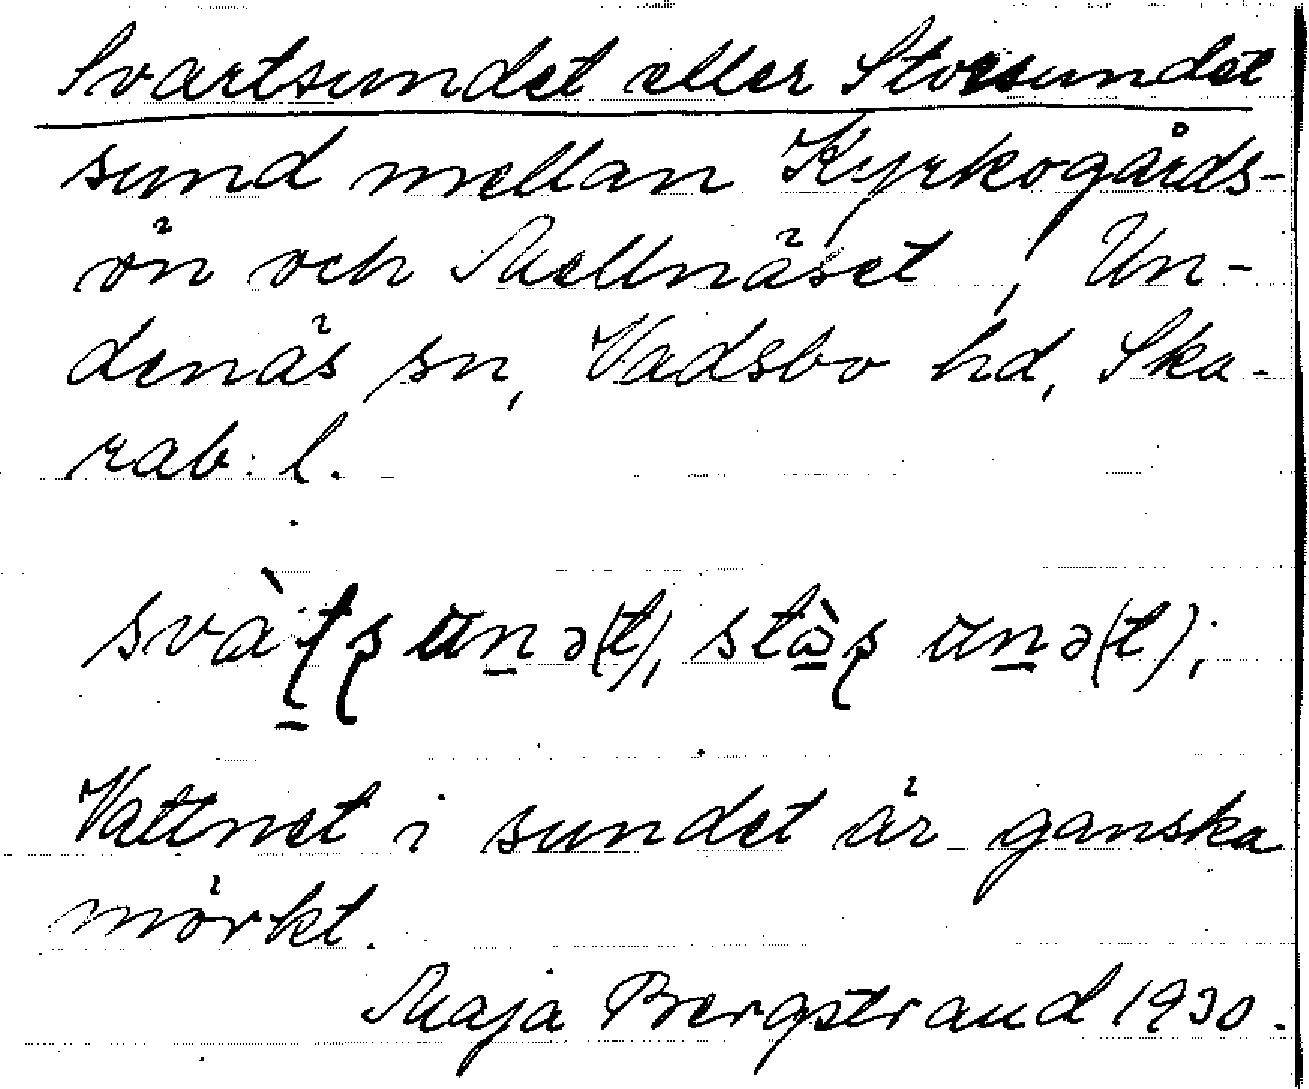 Svartsundet eller Storsundet
sund mellan Kyrkogårds-
ön och Mellnäset, Un-
denäs sn, Vadsbo hd, Ska-
rab. l.
svàʈʂ ùn̲ə(t), stɷ̀ʂ ùn̲ə(t);
Vattnet i sundet är ganska
mörkt.
Maja Bergstrand 1930.